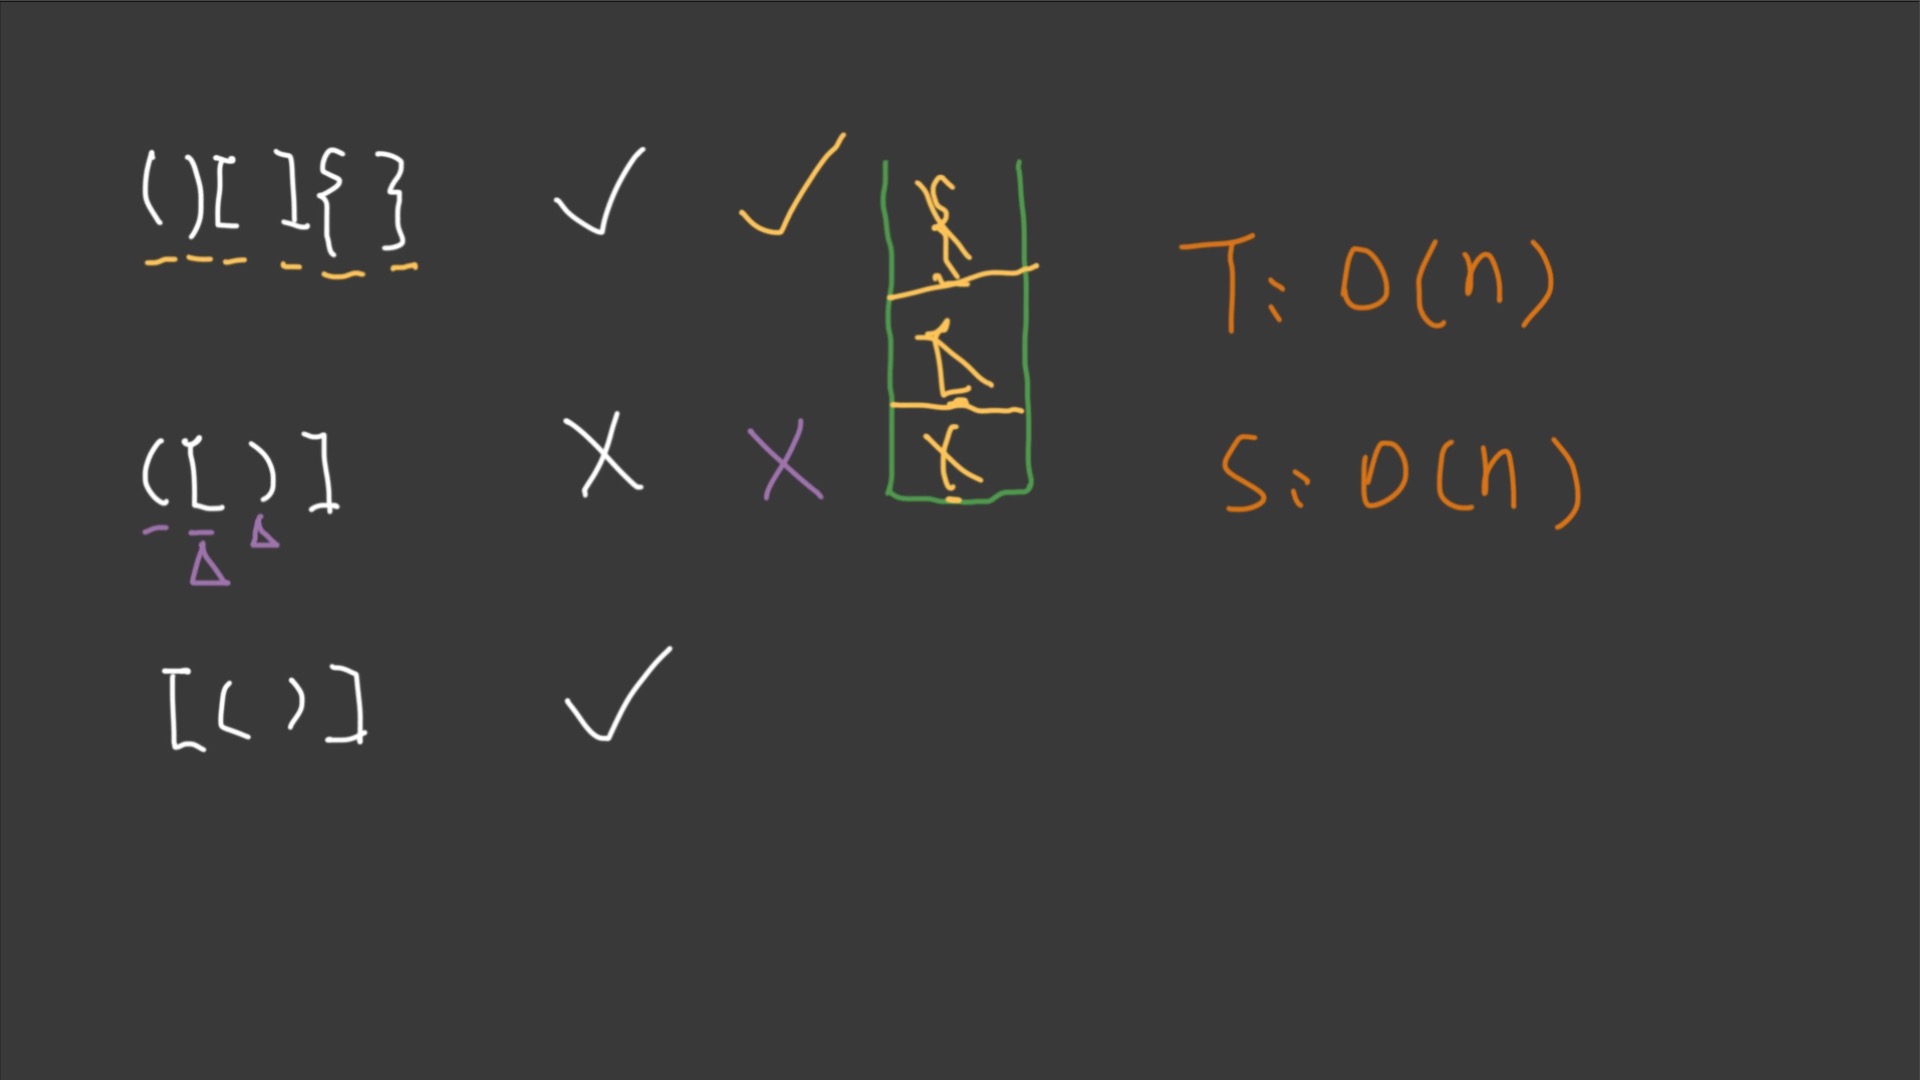 ()[]{} ✓ ✓
([)] X X
[()] ✓
{
[
(
T: O(n)
S: O(n)